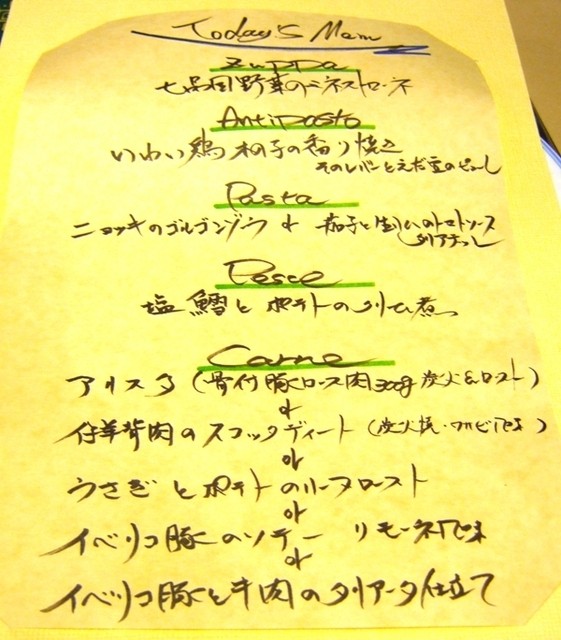 Today's Menu
Zuppa
七品目野菜のミネストローネ
Antipasto
いわい鶏 柚子の香り焼
そのレバーとえだ豆のピューレ
Pasta
ニョッキのゴルゴンゾーラ or 茄子と生ハムのトマトソース
タリアテッレ
Pesce
塩鱈とポテトの 煮
Carne
アリスタ (骨付豚ロース肉300g 炭火ロースト)
or
仔羊背肉のスコッタディート (炭火焼・ )
or
うさぎとポテトの ロースト
or
イベリコ豚のソテー リモーネ風味
or
イベリコ豚と牛肉のタリアータ仕立て